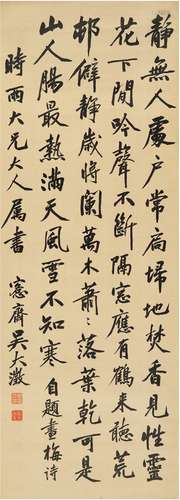 靜無人處戶常扃掃地焚香見性靈
花下閒吟聲不斷隔窓應有鶴來聽荒
邨僻靜歲將闌萬木蕭〻落葉乾可是
山人腸最熱滿天風雪不知寒 自題畫梅詩
時雨大兄大人屬書 窓齋吳大澂